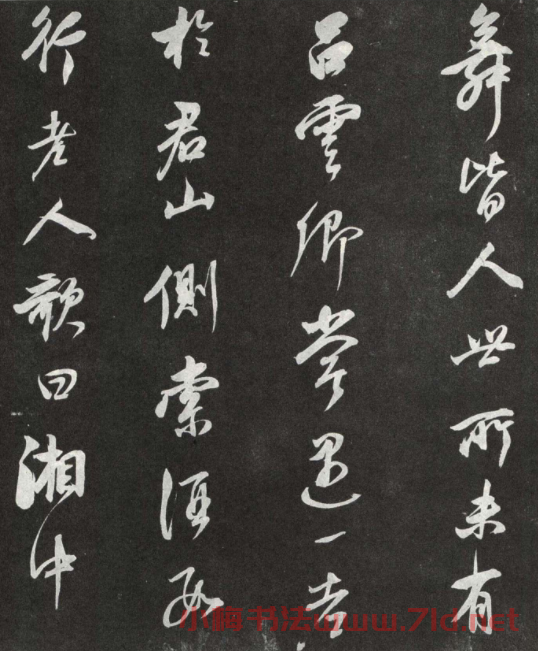 舞皆人世所未有
呂雲卿嘗遇一老
於君山側索酒數
行老人歌曰湘中
小楷书法www.7ld.net